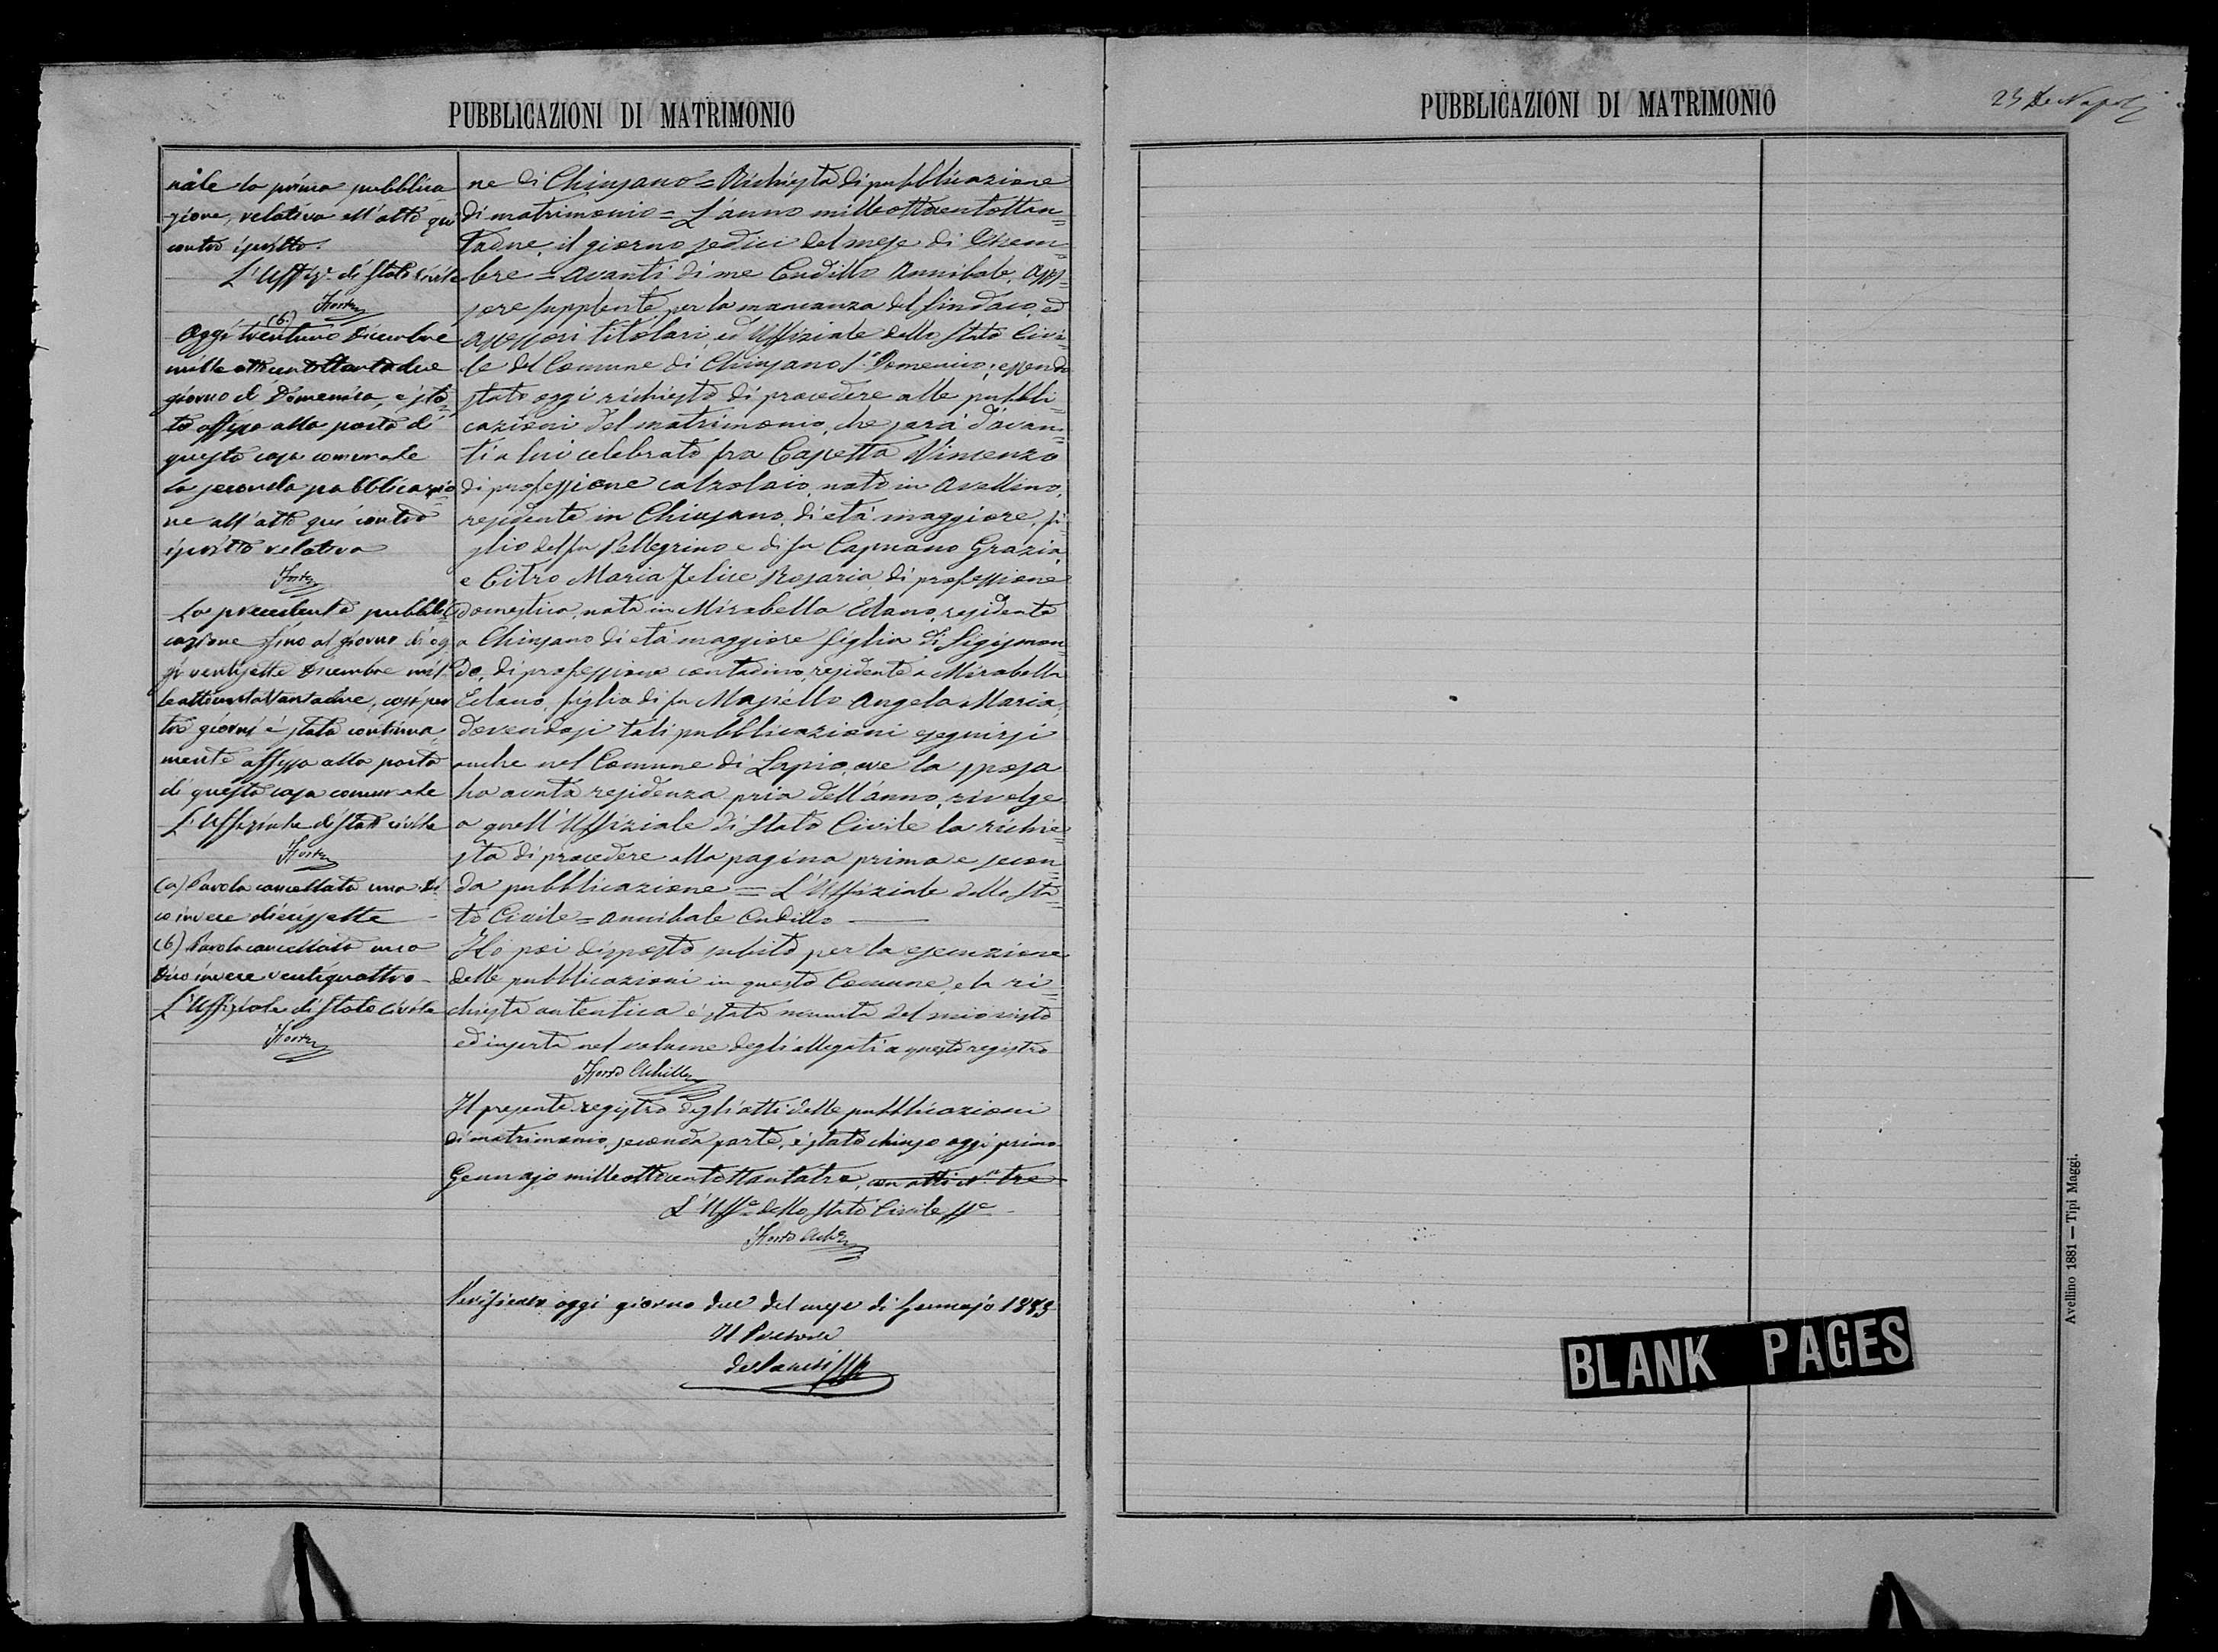 PUBBLICAZIONI DI MATRIMONIO
nale la prima pubblica
zione, relativa all'atto qui
contro iscritto.
L'Uffiz.e di Stato Civile
Forte
(b)
Oggi ventuno Dicembre
mille ottocentottantadue
giorno di Domenica, è sta
to affissa alla porta di
questa casa comunale
la seconda pubblicazio
ne all'atto qui contro
iscritto relativa
La precedente pubbli
cazione sino al giorno di og
gi ventisette Dicembre mil
leottocentottantadue, così per
tre giorni è stata continua
mente affissa alla porta
di questa casa comunale
L'Uffiziale di Stato civile
(a) Parola cancellata una di
co invece diecissette
(b) Parola cancellata una
Dico invece ventiquattro
L'Uffiziale di Stato Civile
ne di Chiusano = Richiesta di pubblicazione
di matrimonio = L'anno milleottocentottan=
tadue, il giorno sedici del mese di Dicem=
bre = avanti di me Cudillo Annibale, asses=
sore supplente, per la mancanza del Sindaco, ed
assessori titolari, ed Uffiziale dello Stato Civi=
le del Comune di Chiusano S. Domenico; essendo
stato oggi richiesto di procedere alle pubbli=
cazioni del matrimonio, che sarà d'avan=
ti a lui celebrato fra Capetta Vincenzo
di professione calzolaio, nato in Avellino,
residente in Chiusano, di età maggiore, fi=
glio del fu Pellegrino e di fu Capuano Grazia,
e Citro Maria Felice Rosaria di professione
domestica, nata in Mirabella Eclano, residente
a Chiusano di età maggiore figlia di Sigismon=
do, di professione contadino, residente a Mirabella
Eclano, figlia di fu Masiello Angela Maria,
dovendosi tali pubblicazioni eseguirsi
anche nel Comune di Lapio, ove la sposa
ha avuta residenza pria dell'anno, rivolge
a quell'Uffiziale di Stato Civile la richie=
sta di procedere alla pagina prima e secon=
da pubblicazione = L'Uffiziale dello Sta=
to Civile = Annibale Cudillo
Ho poi disposto subito per la esecuzione
delle pubblicazioni in questo Comune, e la ri=
chiesta autentica è stata munita del mio visto
ed inserta nel volume degli allegati a questo registro
Achille
Il presente registro degli atti delle pubblicazioni
di matrimonio, seconda parte, è stato chiuso oggi primo
Gennajo milleottocentottantatre, con atti N. tre
L'Uff.e dello Stato Civile ff.e
Verificato oggi giorno due del mese di Gennajo 1883
Il Pretore
PUBBLICAZIONI DI MATRIMONIO
23 De Napoli
Avellino 1881 — Tipi Maggi.
BLANK PAGES